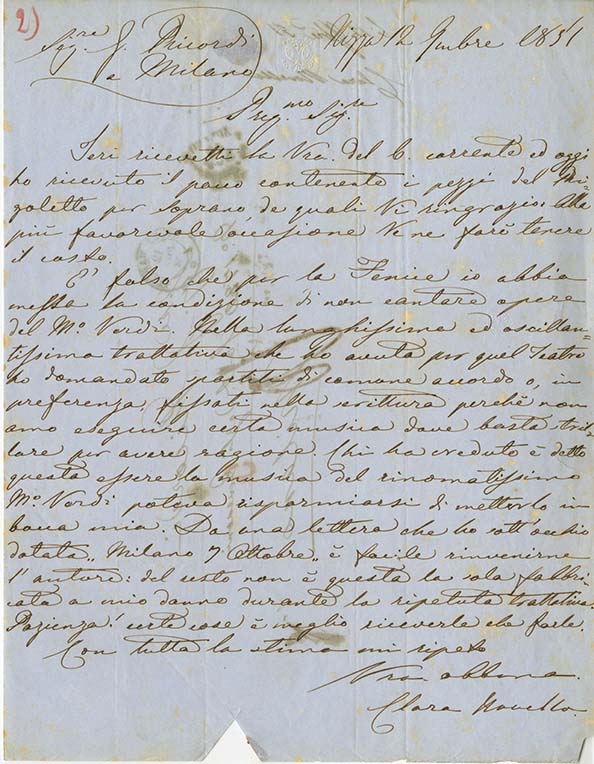 2)
Sig.re G. Ricordi
a Milano
Nizza 12 9mbre 1851
Preg.mo Sig.re
Ieri ricevetti la Vra. del 6. corrente ed oggi
ho ricevuto il pacco contenente i pezzi del Ri=
goletto per soprano de quali Vi ringrazio: alla
più favorevole occasione Ve ne farò tenere
il costo.
E' falso che per la Fenice io abbia
messa la condizione di non cantare opere
del M.o Verdi. Nella lunghissima ed oscillan=
tissima trattativa che ho avuta per quel Teatro
ho domandato spartiti di comune accordo o, in
preferenza, fissati nella scrittura perchè non
amo eseguire certa musica dove basta stril=
lare per aver ragione. Chi ha creduto e detto
questa essere la musica del rinomatissimo
M.o Verdi poteva risparmiarsi di metterlo in
bocca mia. Da una lettera che ho sott'occhio
datata „Milano 7 Ottobre„ è facile rinvenirne
l'autore: del resto non è questa la sola fabbri
cata a mio danno durante la ripetuta trattativa.
Pazienza! certe cose è meglio riceverle che farle.
Con tutta la stima mi ripeto
Vra obbma.
Clara Novello.